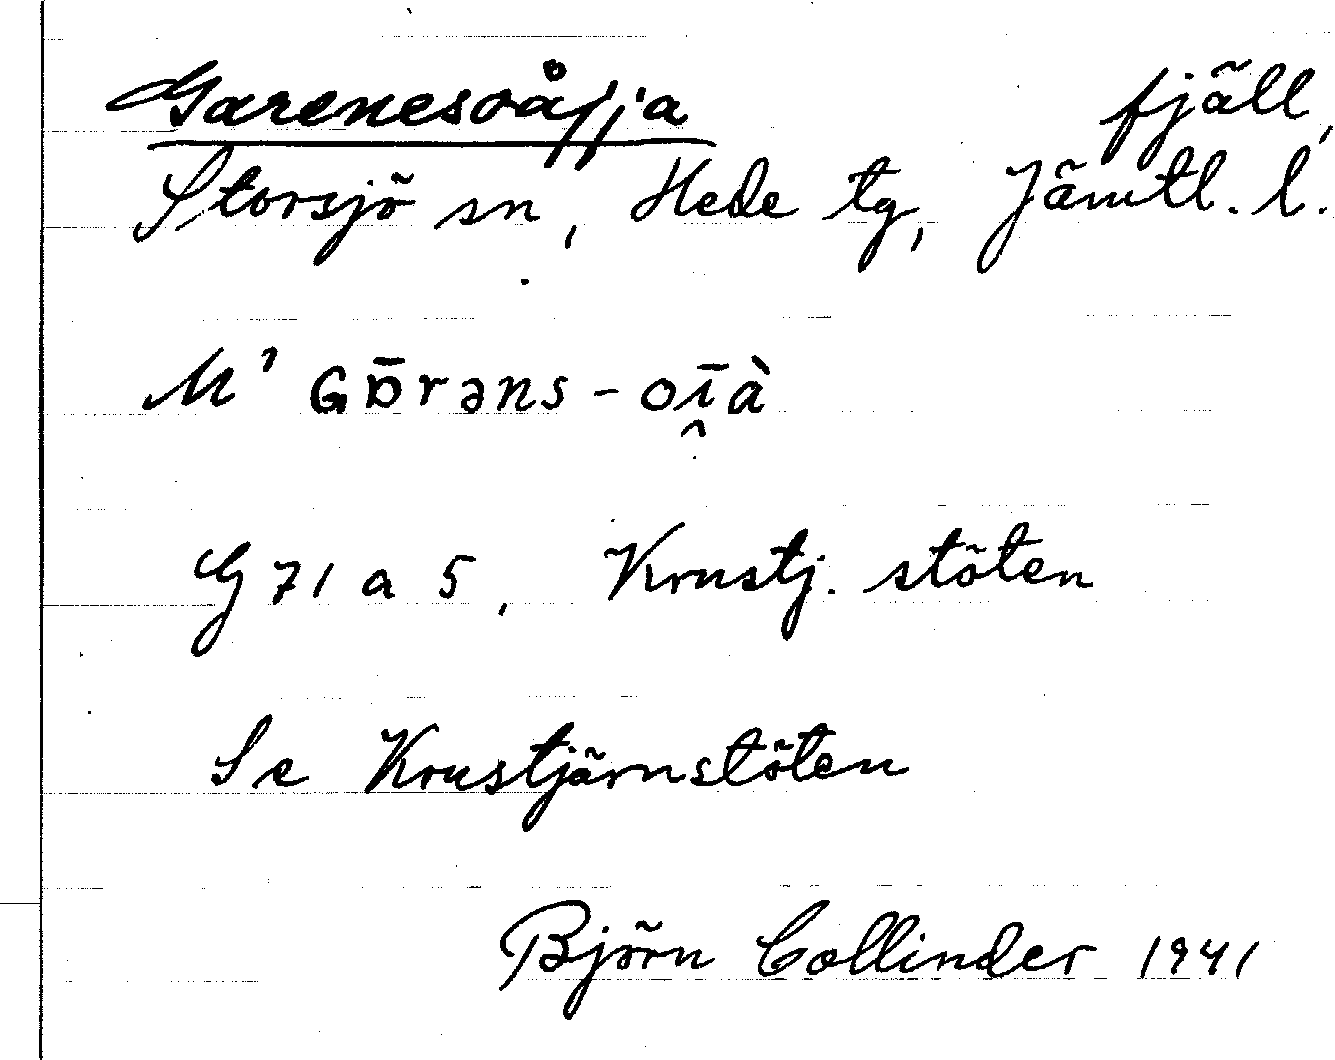 Garenesoåjja fjäll,
Storsjö sn, Hede tg, Jämtl. l.
M' Gɒ̄rəns - oī̯à
G 71 a 5, Krustj. stöten
Se Krustjärnstöten
Björn Collinder 1941